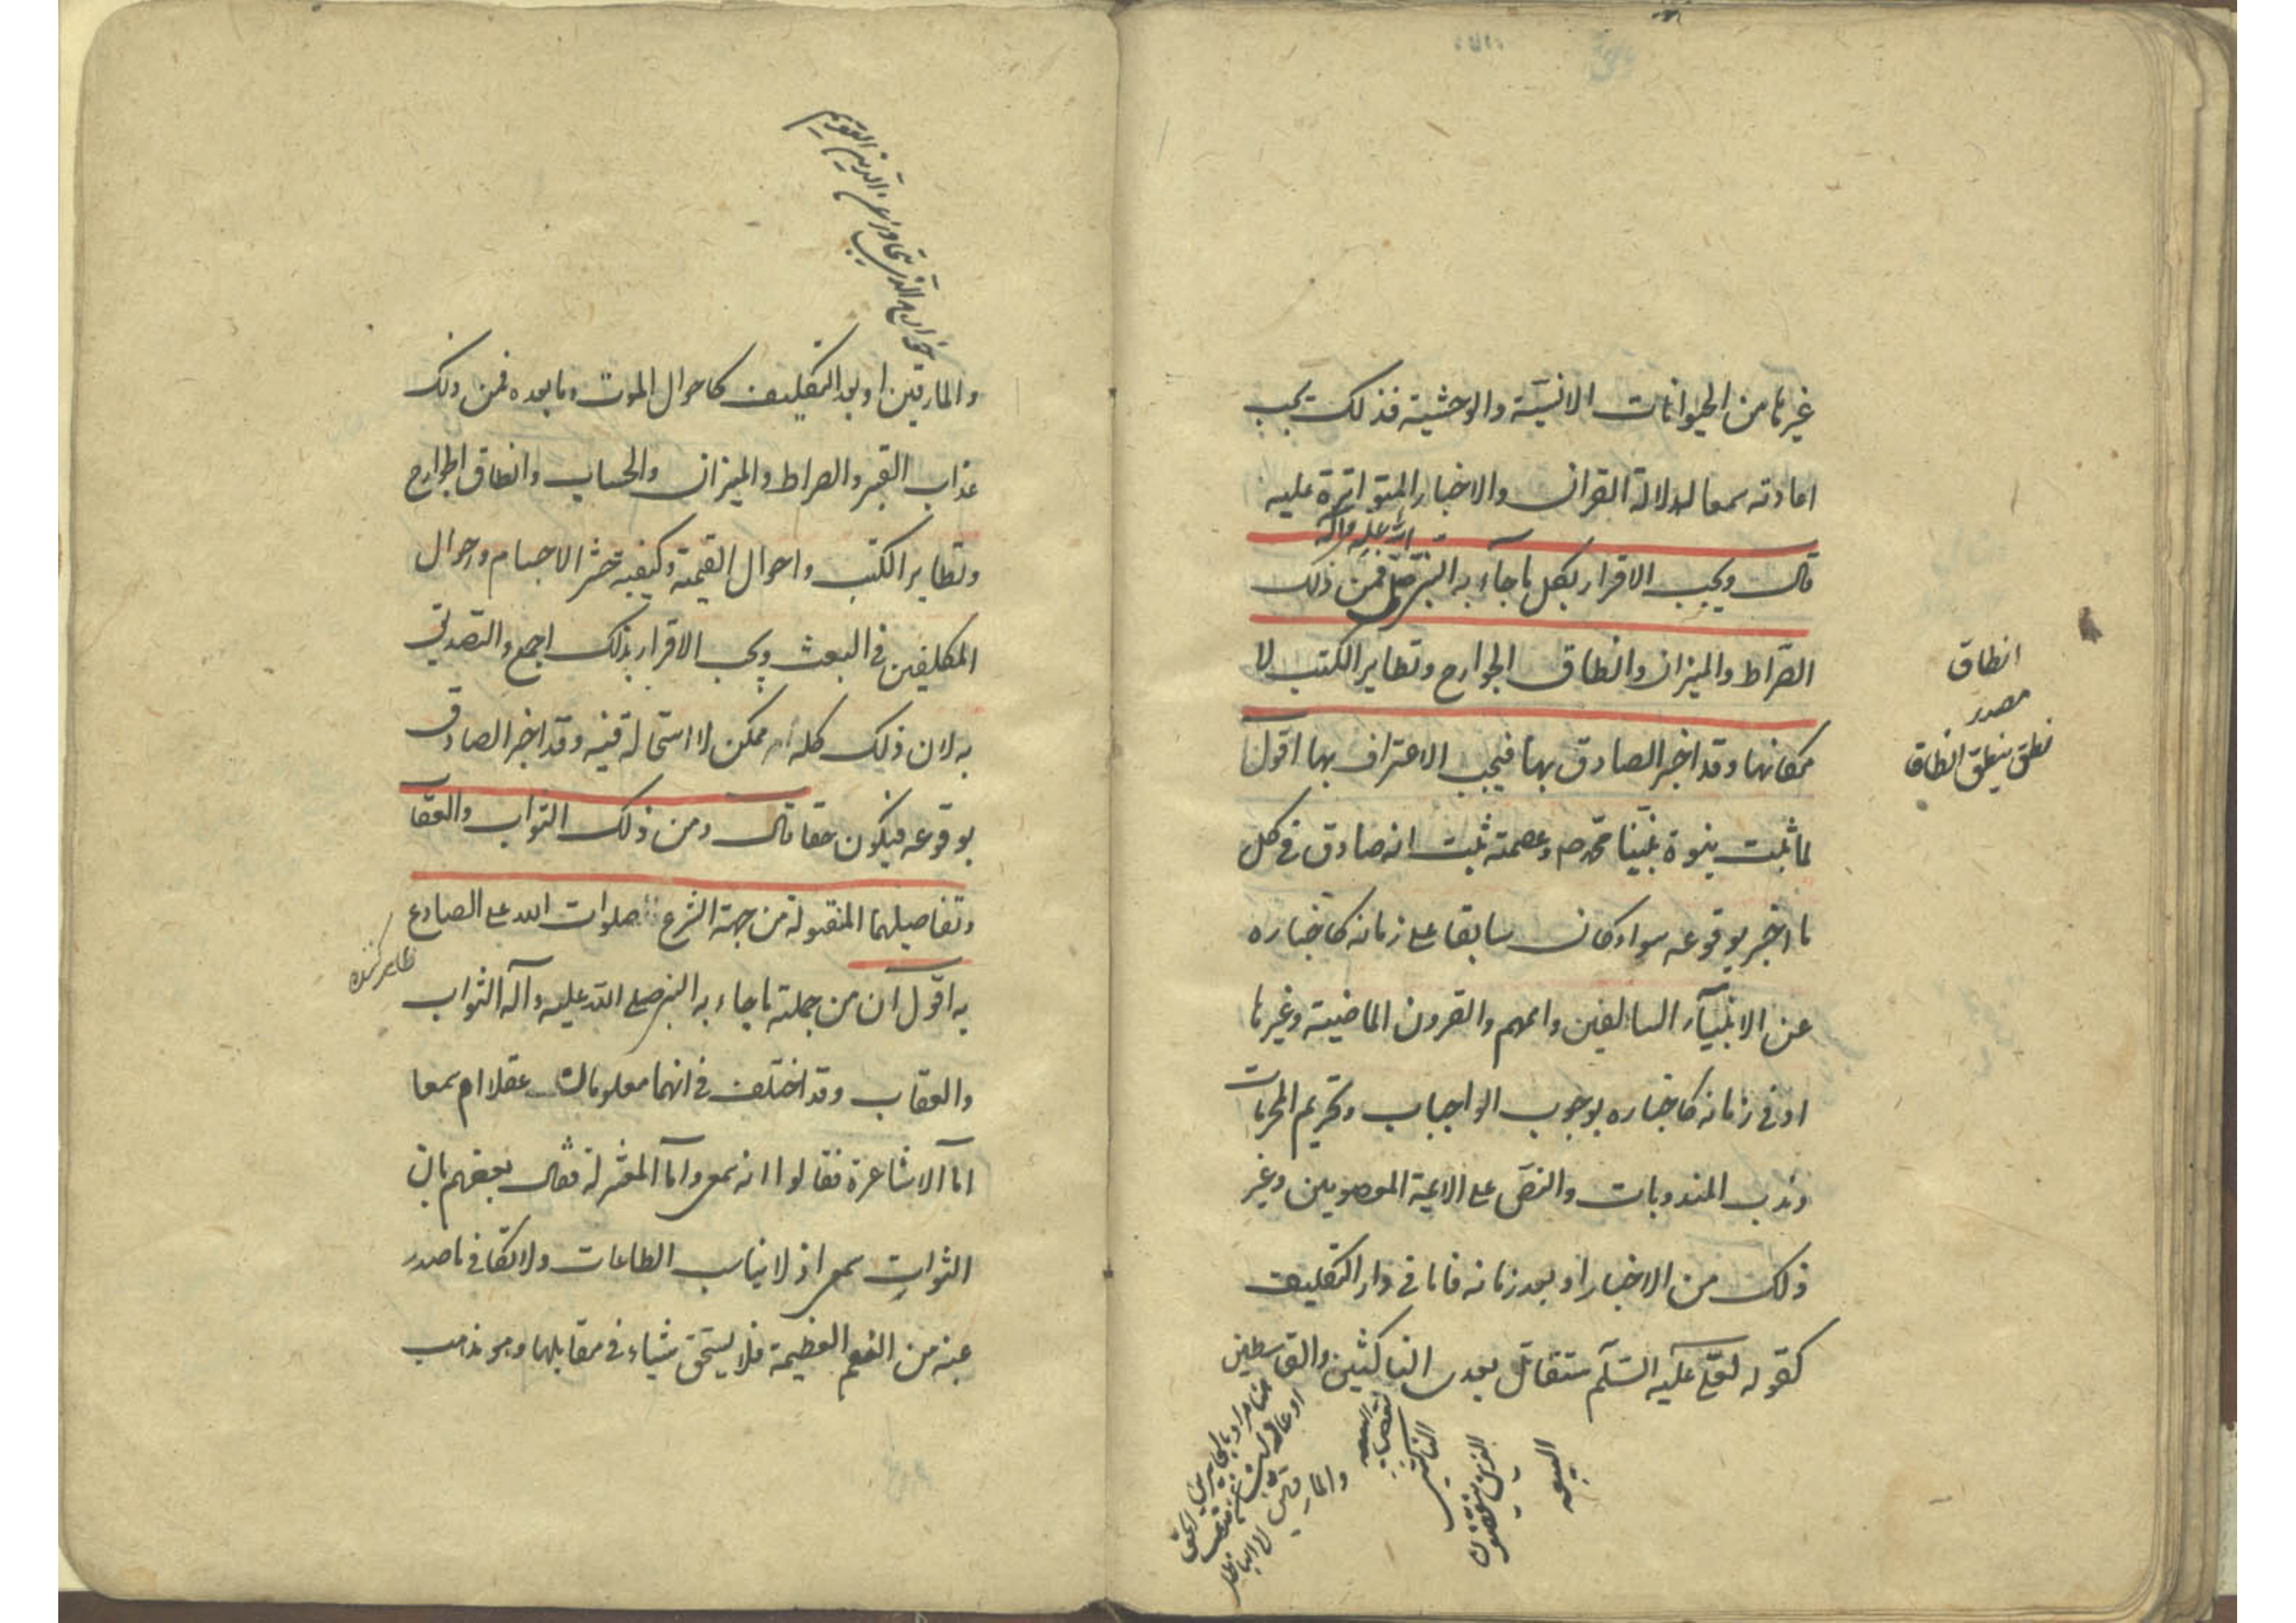 غيرها من الحيوانات الانسيّة والوحشية فذلك يجب
اعادته سمعا لدلالة القران والاخبار المتواترة عليه
الله عليه وآله
قال ويجب الاقرار بكل ما جآء به النبي صلى فمن ذلك
الصّراط والميزان وانطاق الجوارح وتطاير الكتب لا
مكانها وقد اخبر الصادق بها فيجب الاعتراف بها اقول
لما ثبت نبوة نبيّنا محمّد ص وعصمته ثبت انه صادق في كل
ما اخبر بوقوعه سواء كان سابقا على زمانه كاخباره
عن الانبيآء السالفين واممهم والقرون الماضية وغيرها
او في زمانه كاخباره بوجوب الواجبات وتحريم المحرمات
وندب المندوبات والنصّ على الائمة المعصومين وغير
ذلك من الاخبار او بعد زمانه فاما في دار التكليف
كقوله لعلي عليه السّلم ستقاتل بعدى الناكثين والقاسطين
انطاق
مصدر
نطق ينطق انطاق
والمارقين
الناكثين
الذين ينقضون
البيعه
والمارقين او بعد التكليف كاحوال الموت وما بعده فمن ذلك
عذاب القبر والصراط والميزان والحساب وانطاق الجوارح
وتطاير الكتب واحوال القيمة وكيفية حشر الاجسام واحوال
المكلفين في البعث ويجب الاقرار بذلك اجمع والتصديق
به لان ذلك كله امر ممكن لا استحالة فيه وقد اخبر الصادق
بوقوعه فيكون حقا قال ومن ذلك الثواب والعقا
وتفاصيلهما المنقولة من جهة الشرع صلوات الله على الصادع
به اقول ان من جملة ما جاء به النبي صلى الله عليه وآله الثواب
والعقاب وقد اختلف في انهما معلومان عقلا ام سمعا
امّا الاشاعرة فقالوا انه سمعي وامّا المعتزلة فقال بعضهم بان
الثواب سمعي اذ لا يناسب الطاعات ولا تكافي ما صدر
عنه من النعم العظيمة فلا يستحق شياء في مقابلها وهو مذهب
ظاهر كننده